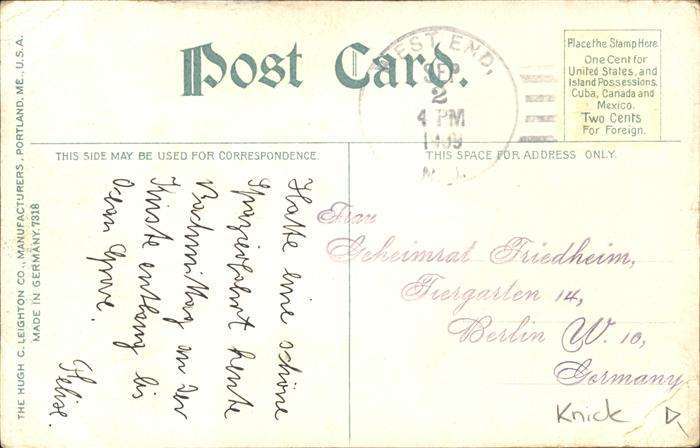 Post Card.
WEST END,
SEP
2
4 PM
1909
N.J.
Place the Stamp Here
One Cent for
United States, and
Island Possessions,
Cuba, Canada and
Mexico.
Two Cents
For Foreign.
THIS SIDE MAY BE USED FOR CORRESPONDENCE.
THIS SPACE FOR ADDRESS ONLY.
THE HUGH C. LEIGHTON CO., MANUFACTURERS, PORTLAND, ME., U.S.A.
MADE IN GERMANY. 7318
Hatte eine schöne
Spazierfahrt heute
Nachmittag an der
Küste entlang bis
Ocean Grove.
Felise.
Frau
Geheimrat Friedheim,
Tiergarten 14,
Berlin W. 10,
Germany
Knick